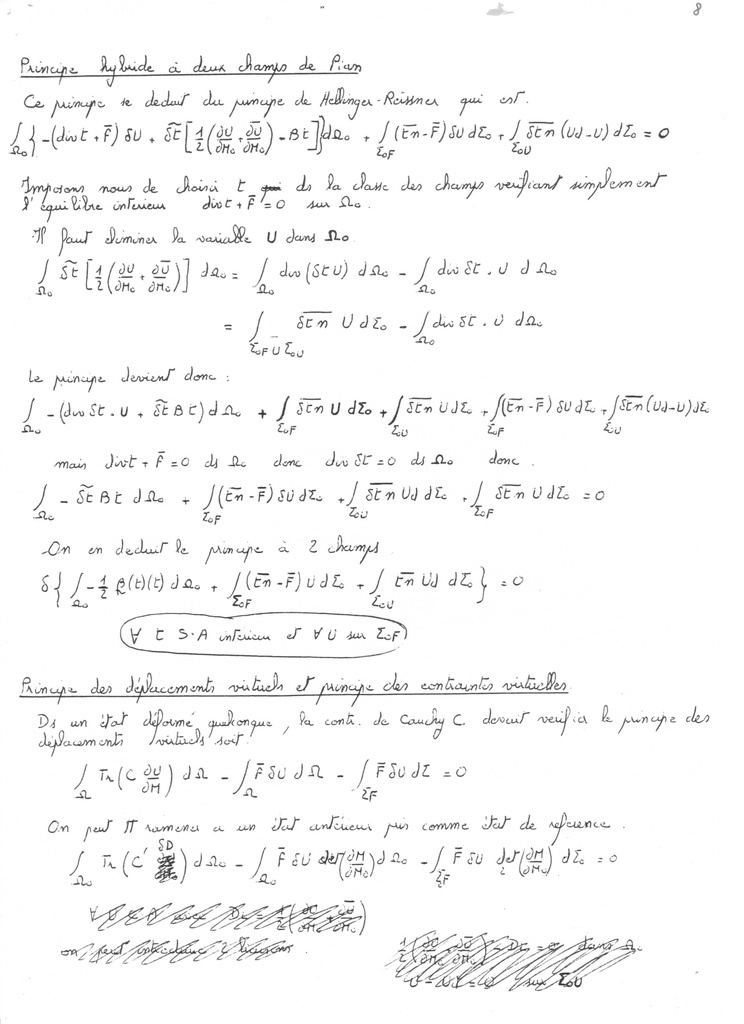 8
Principe hybride à deux champs de Pian
Ce principe se deduit du principe de Hellinger-Reissner qui est.
∫_Ω₀ { -(div t + F̄) δU + δt̃ [ 1/2 (∂U/∂M₀ + ∂Ū/∂M₀) - B t ] } dΩ₀ + ∫_Σ₀F (t̄n̄ - F̄) δU dΣ₀ + ∫_Σ₀U δt̄n̄ (Ud - U) dΣ₀ = 0
Imposons nous de choisir t ds la classe des champs verifiant simplement
l'équilibre interieur div t + F̄ = 0 sur Ω₀.
Il faut eliminer la variable U dans Ω₀
∫_Ω₀ δt̃ [ 1/2 (∂U/∂M₀ + ∂Ū/∂M₀) ] dΩ₀ = ∫_Ω₀ div (δt U) dΩ₀ - ∫_Ω₀ div δt . U dΩ₀
= ∫_Σ₀F Ū Σ₀U δt̄n̄ U dΣ₀ - ∫_Ω₀ div δt . U dΩ₀
Le principe devient donc :
∫_Ω₀ - (div δt . U + δt̃ B t) dΩ₀ + ∫_Σ₀F δt̄n̄ U dΣ₀ + ∫_Σ₀U δt̄n̄ U dΣ₀ + ∫_Σ₀F (t̄n̄ - F̄) δU dΣ₀ + ∫_Σ₀U δt̄n̄ (Ud - U) dΣ₀
mais div t + F̄ = 0 ds Ω₀ donc div δt = 0 ds Ω₀ donc.
∫_Ω₀ - δt̃ B t dΩ₀ + ∫_Σ₀F (t̄n̄ - F̄) δU dΣ₀ + ∫_Σ₀U δt̄n̄ Ud dΣ₀ + ∫_Σ₀F δt̄n̄ U dΣ₀ = 0
On en deduit le principe à 2 champs
δ { ∫_Ω₀ - 1/2 β(t)(t) dΩ₀ + ∫_Σ₀F (t̄n̄ - F̄) U dΣ₀ + ∫_Σ₀U t̄n̄ Ud dΣ₀ } = 0
∀ t S.A interieur et ∀ U sur Σ₀F
Principe des déplacements virtuels et principe des contraintes virtuelles.
Ds un état déformé quelconque, la cont. de Cauchy C. devait verifier le principe des
déplacements virtuels soit.
∫_Ω Tr (C ∂δU/∂M) dΩ - ∫_Ω F̄ δU dΩ - ∫_ΣF F̄ δU dΣ = 0
On peut Π ramener a un état antérieur pris comme état de reference.
∫_Ω₀ Tr (C' δD) dΩ₀ - ∫_Ω₀ F̄ δU det (∂M/∂M₀) dΩ₀ - ∫_ΣF F̄ δU det₂ (∂M/∂M₀) dΣ₀ = 0